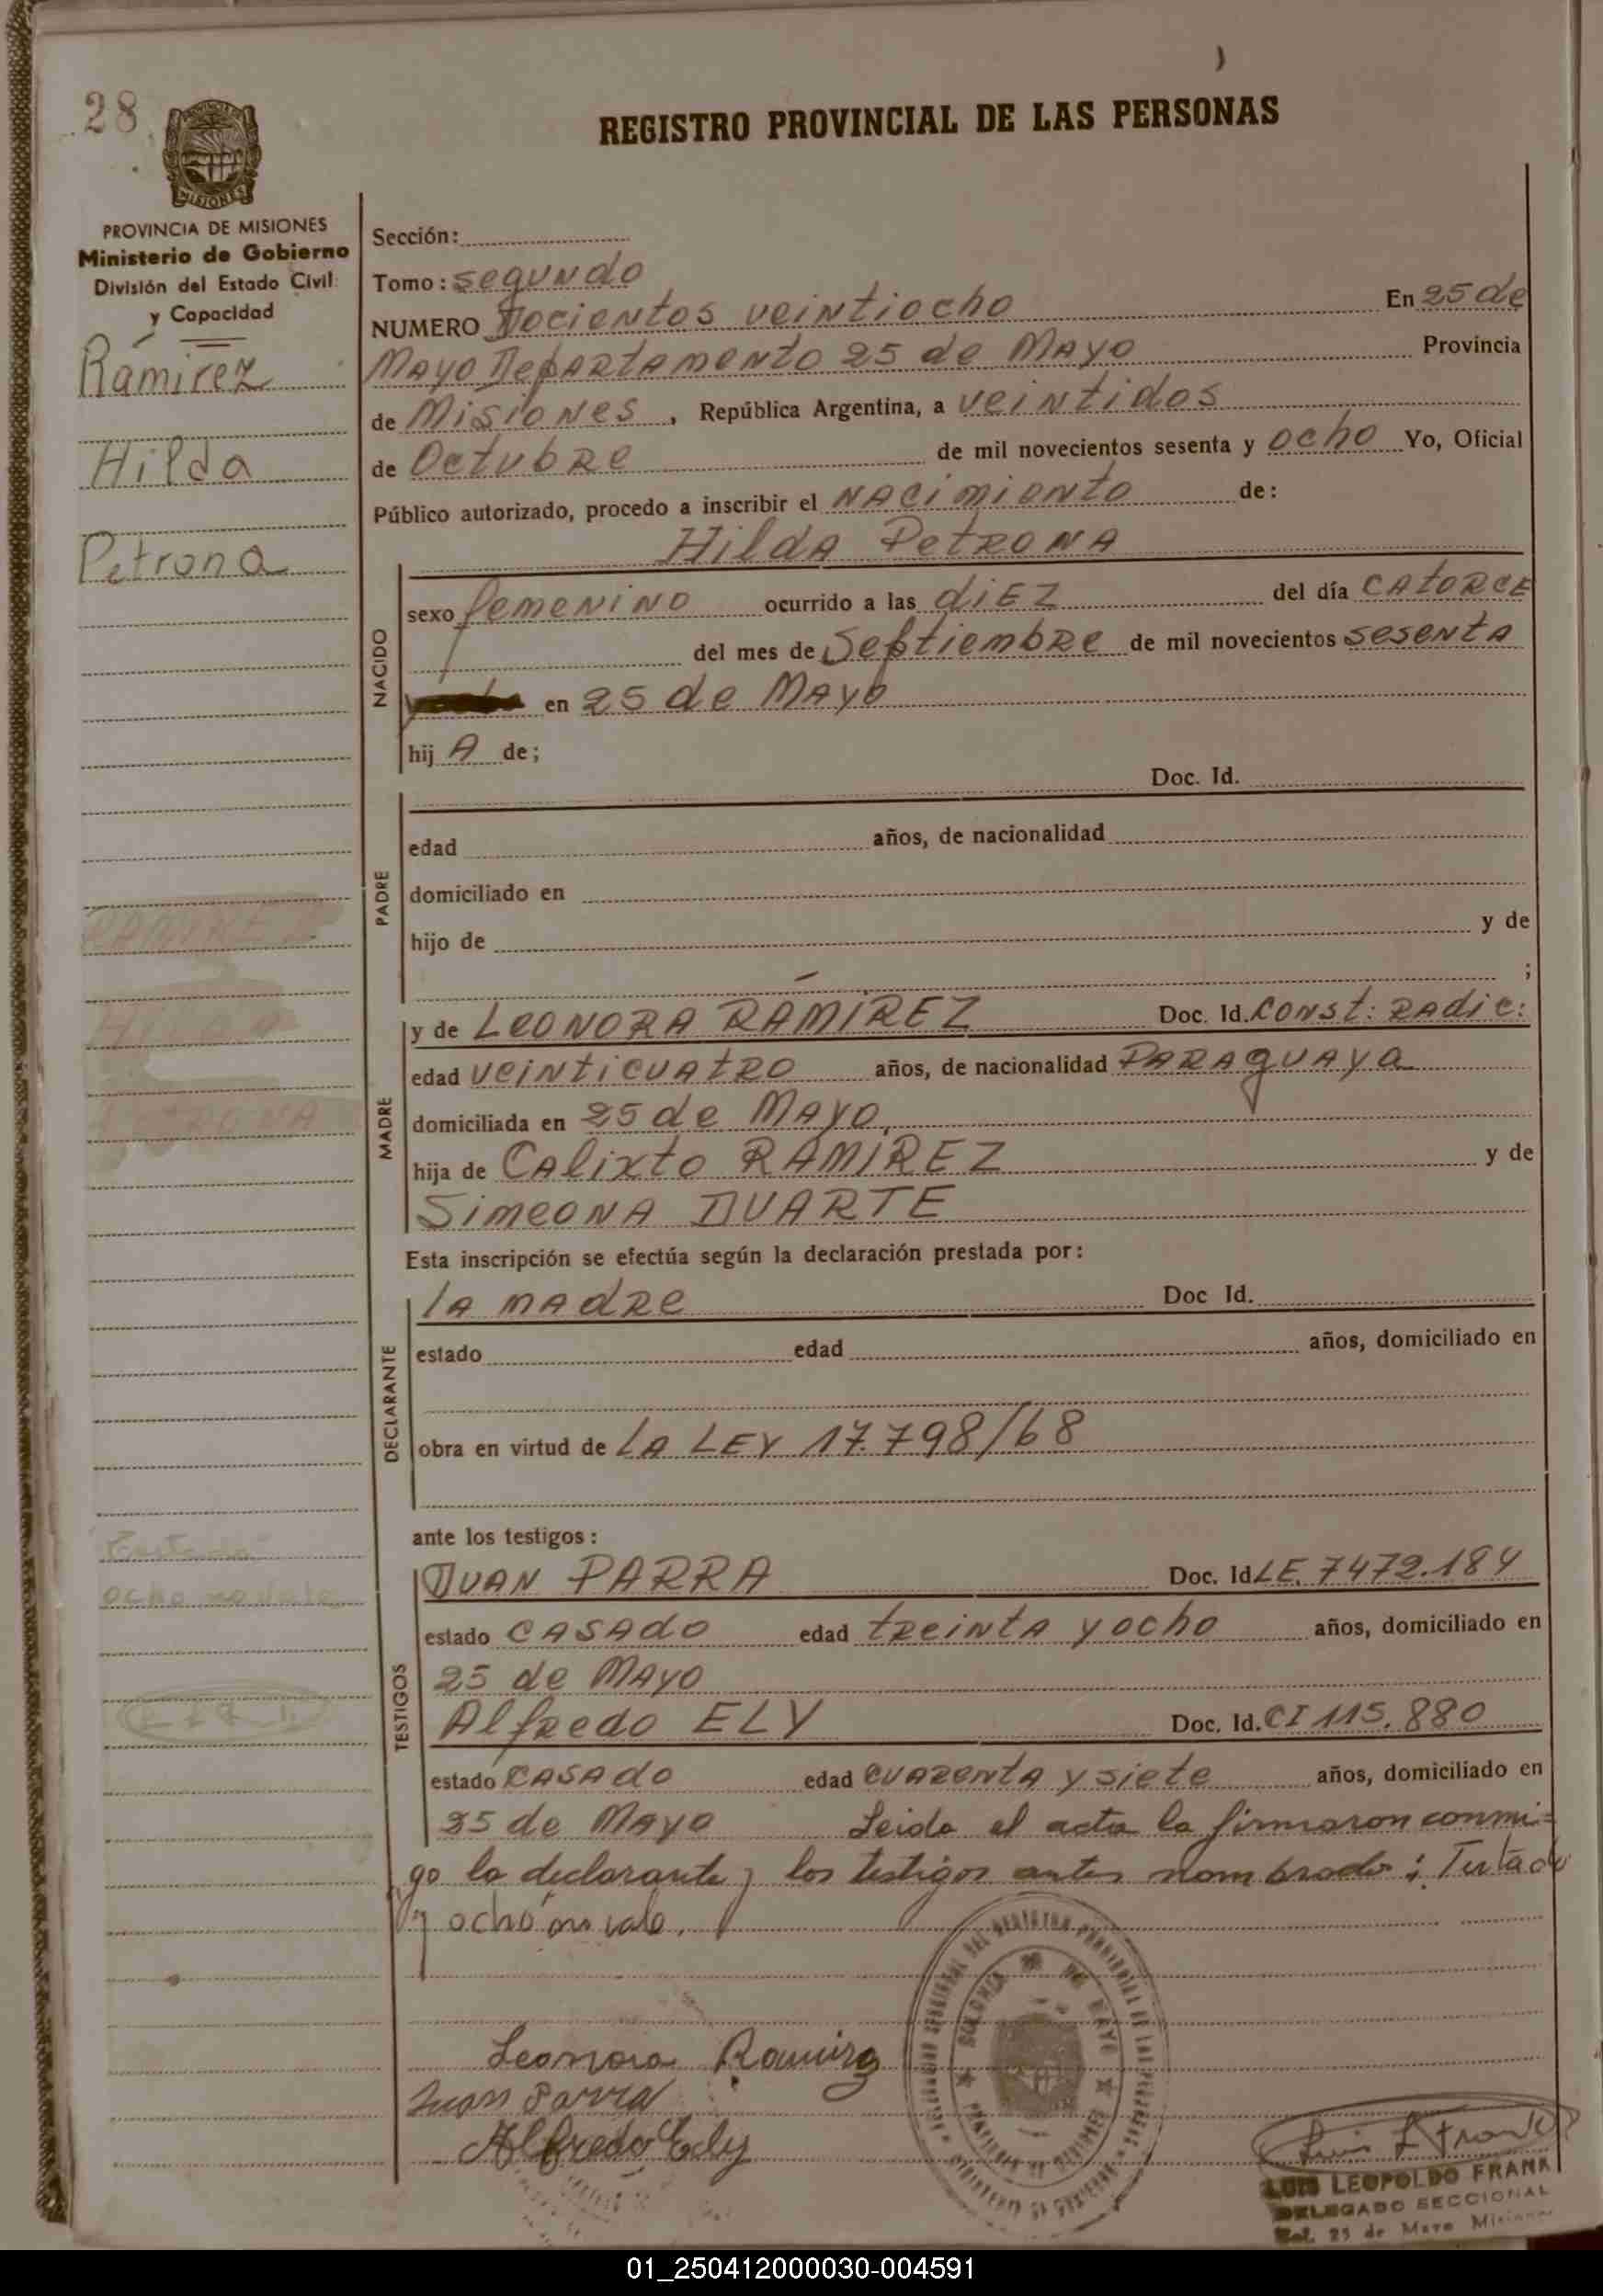 28
REGISTRO PROVINCIAL DE LAS PERSONAS
MISIONES
PROVINCIA DE MISIONES
Ministerio de Gobierno
División del Estado Civil
y Capacidad
Ramírez
Hilda
Petrona
RAMIREZ
Hilda
PETRONA
Testado
ocho no vale
Sección:
Tomo: segundo
NUMERO Docientos veintiocho En 25 de
Mayo Departamento 25 de Mayo Provincia
de Misiones, República Argentina, a veintidos
de Octubre de mil novecientos sesenta y ocho Yo, Oficial
Público autorizado, procedo a inscribir el nacimiento de:
Hilda Petrona
NACIDO
sexo femenino ocurrido a las diez del día catorce
del mes de Septiembre de mil novecientos sesenta
en 25 de Mayo
hij A de;
PADRE
Doc. Id.
edad años, de nacionalidad
domiciliado en
hijo de y de
;
MADRE
y de Leonora RAMÍREZ Doc. Id. Const: Radic:
edad veinticuatro años, de nacionalidad Paraguaya
domiciliada en 25 de Mayo,
hija de Calixto RAMIREZ y de
Simeona DUARTE
Esta inscripción se efectúa según la declaración prestada por:
DECLARANTE
la madre Doc Id.
estado edad años, domiciliado en
obra en virtud de LA LEY 17.798/68
ante los testigos:
TESTIGOS
Juan PARRA Doc. Id LE. 7472.184
estado casado edad treinta y ocho años, domiciliado en
25 de Mayo
Alfredo ELY Doc. Id. CI 115.880
estado casado edad cuarenta y siete años, domiciliado en
25 de Mayo Leida el acta la firmaron conmi-
go la declarante y los testigos antes nombrados; Testado
y ocho no vale.
Leonora Ramirez
Juan Parra
Alfredo Ely
Luis L Frank
LUIS LEOPOLDO FRANK
DELEGADO SECCIONAL
Col. 25 de Mayo Misiones
01_250412000030-004591